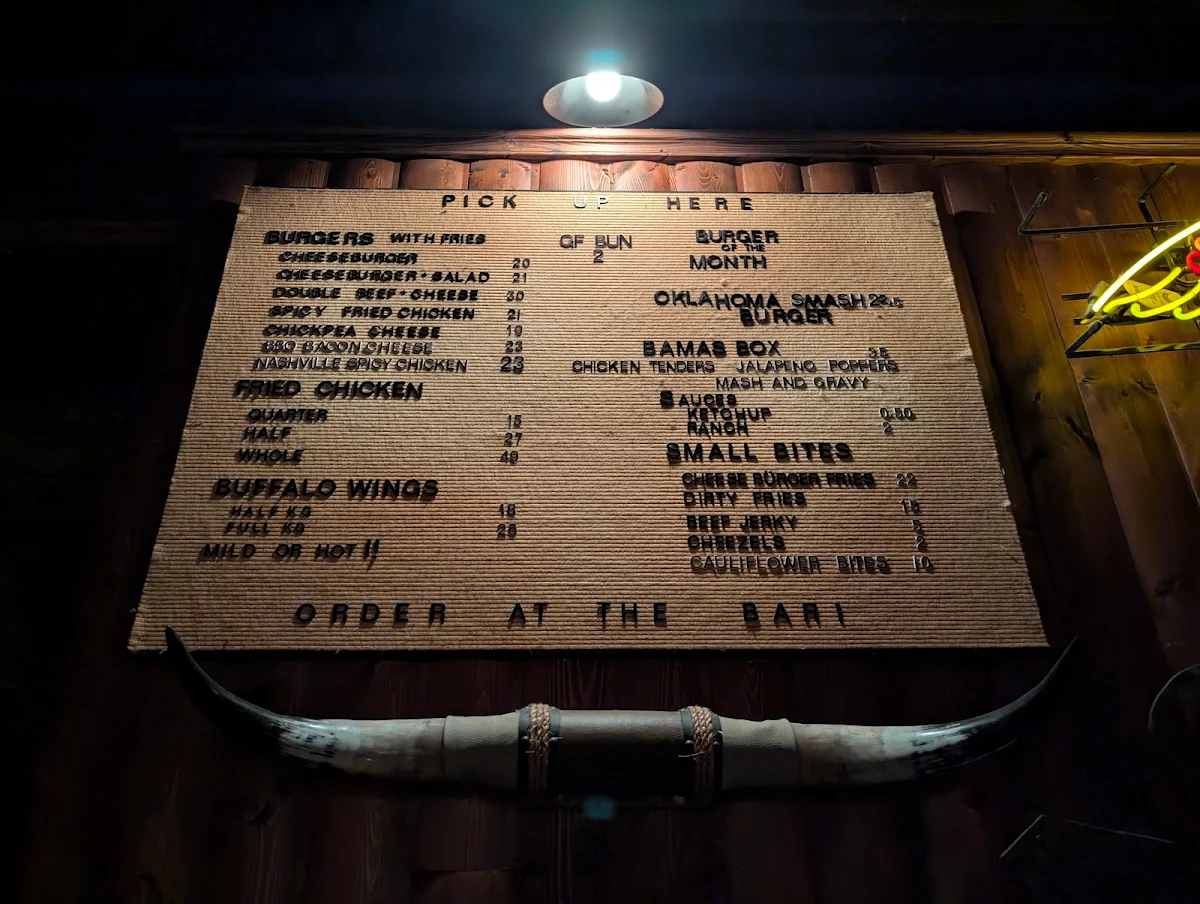 PICK UP HERE
BURGERS WITH FRIES
CHEESEBURGER 20
CHEESEBURGER + SALAD 21
DOUBLE BEEF + CHEESE 30
SPICY FRIED CHICKEN 21
CHICKPEA CHEESE 19
BBQ BACON CHEESE 23
NASHVILLE SPICY CHICKEN 23
FRIED CHICKEN
QUARTER 15
HALF 27
WHOLE 49
BUFFALO WINGS
HALF KG 18
FULL KG 28
MILD OR HOT !!
GF BUN
2
BURGER
OF THE
MONTH
OKLAHOMA SMASH
BURGER
BAMAS BOX 35
CHICKEN TENDERS JALAPENO POPPERS
MASH AND GRAVY
SAUCES
KETCHUP 0.50
RANCH 2
SMALL BITES
CHEESE BÜRGER FRIES 22
DIRTY FRIES 15
BEEF JERKY 5
CHEEZELS 2
CAULIFLOWER BITES 10
ORDER AT THE BAR!